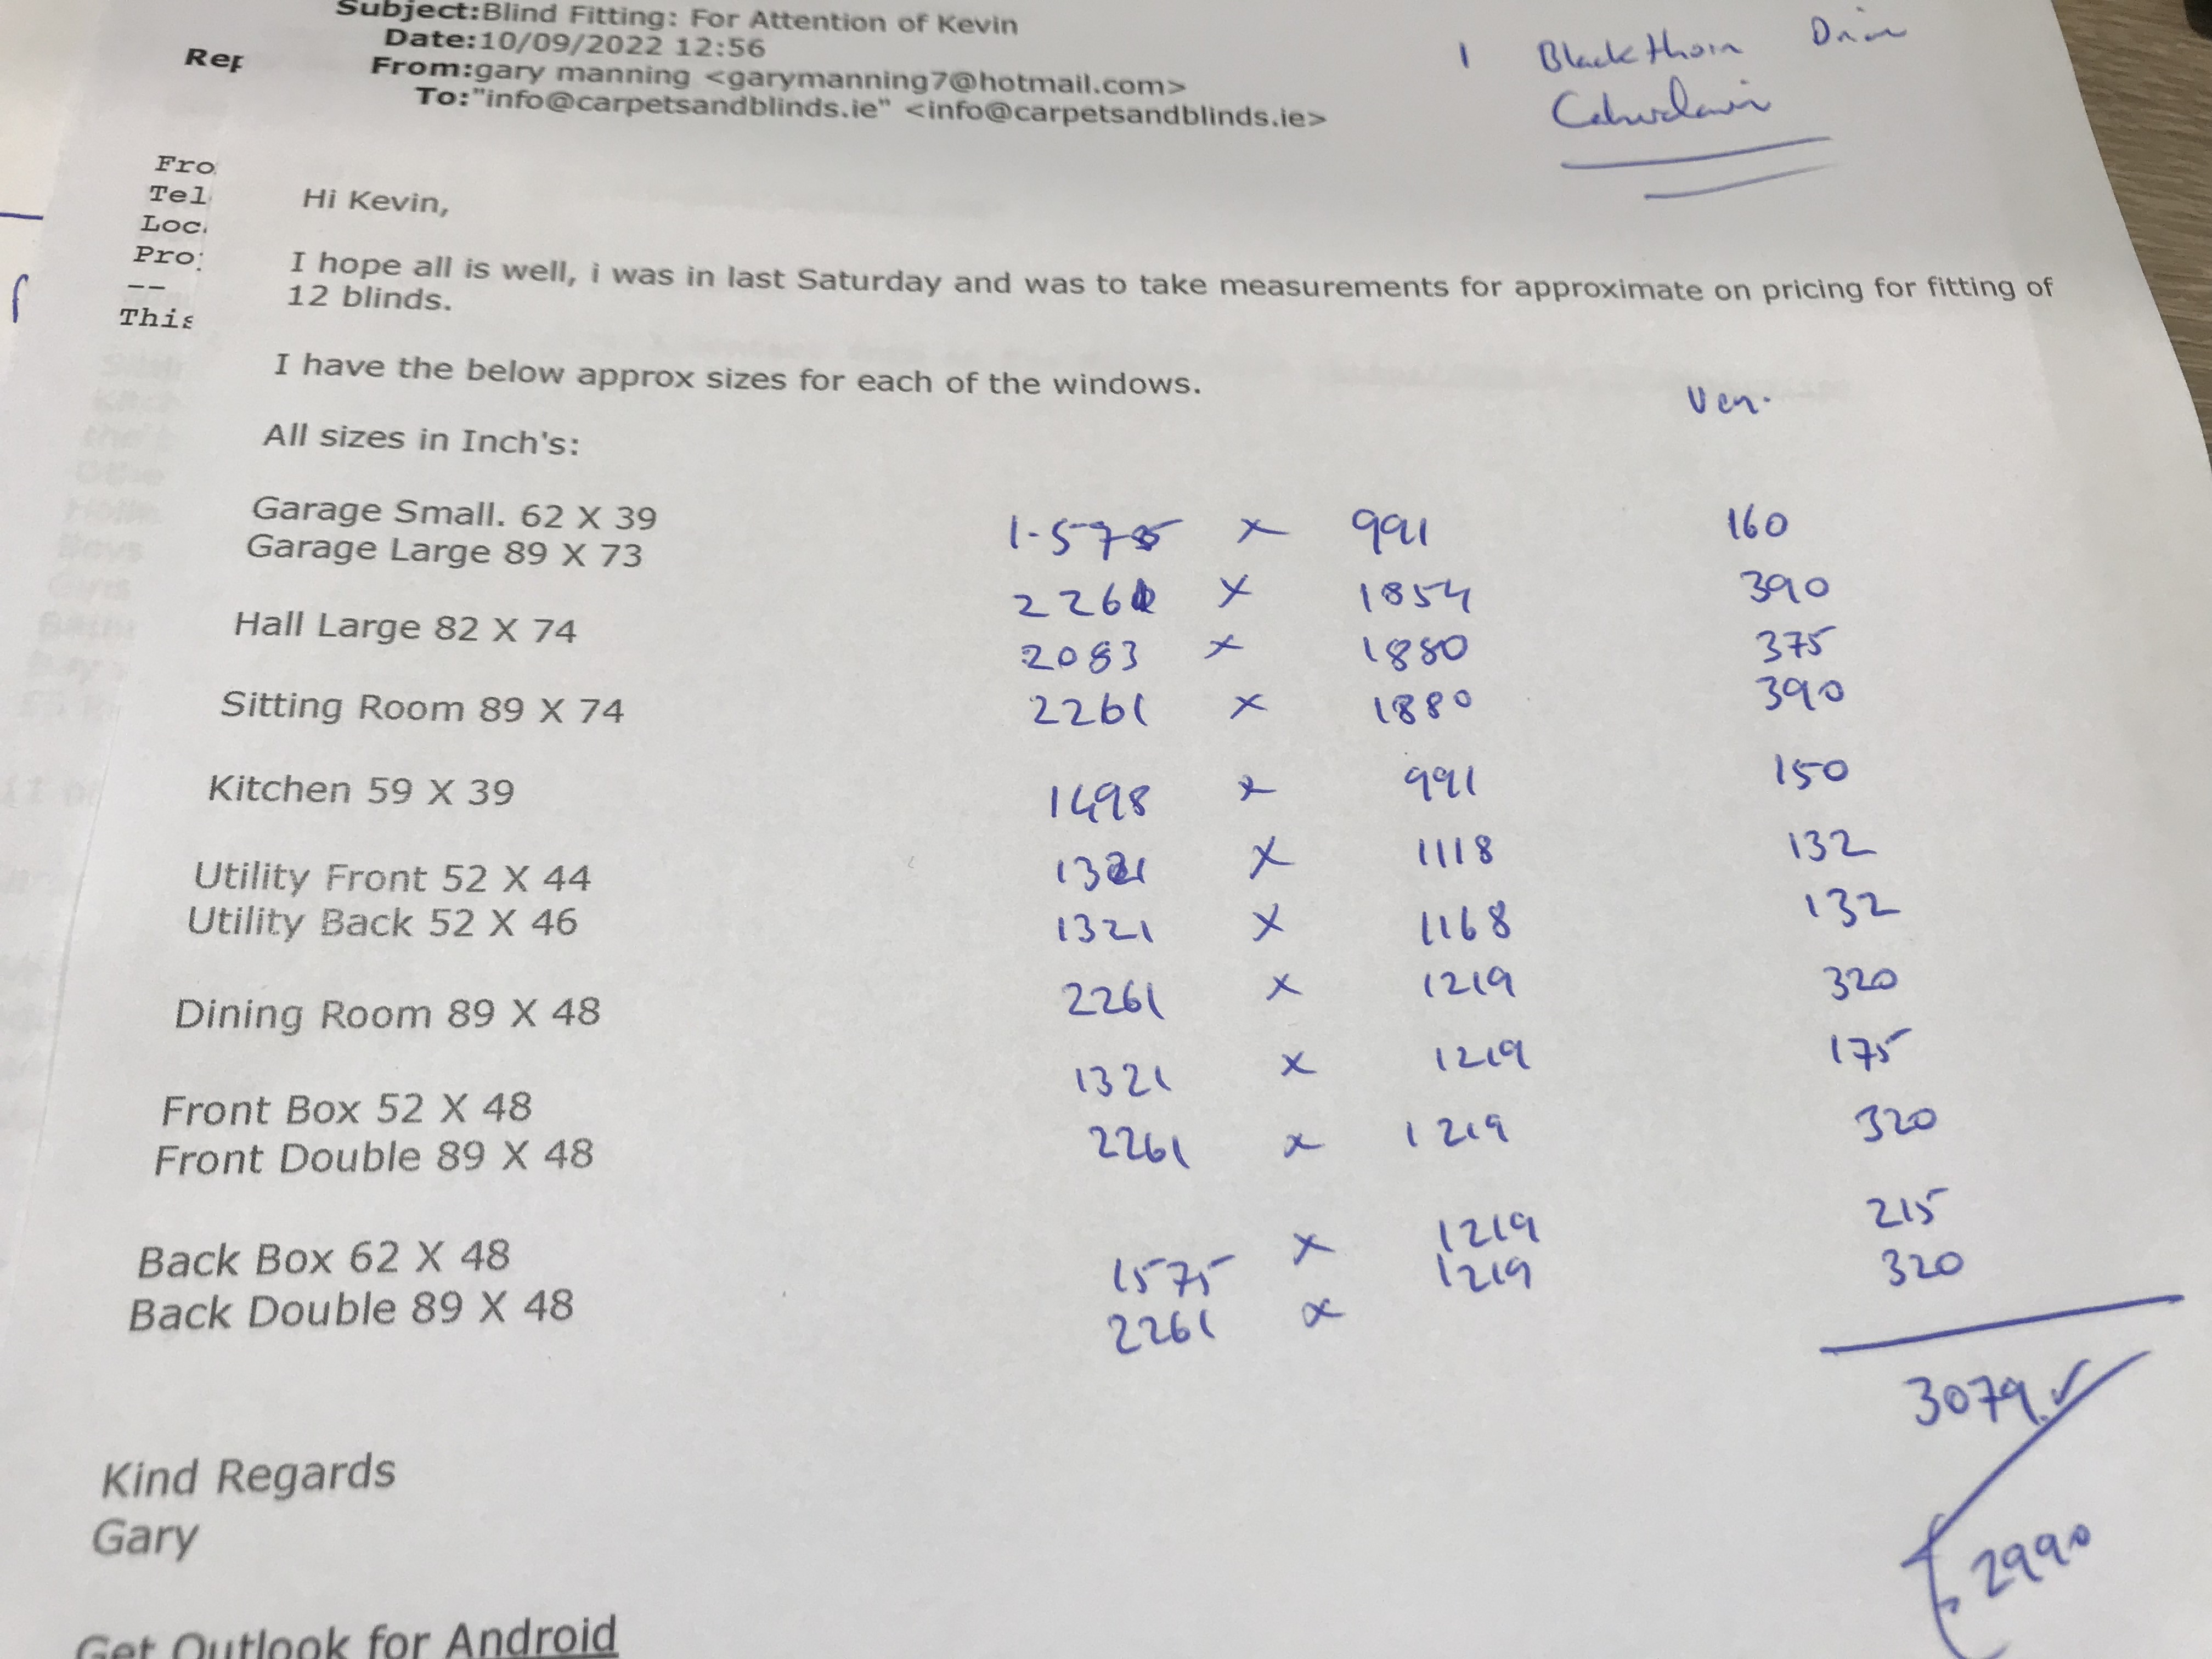 Subject:Blind Fitting: For Attention of Kevin
Date:10/09/2022 12:56
From:gary manning <garymanning7@hotmail.com>
To:"info@carpetsandblinds.ie" <info@carpetsandblinds.ie>
1 Blackthorn
Rep
Fro
Tel
Loc
Pro
--
This
Hi Kevin,
I hope all is well, i was in last Saturday and was to take measurements for approximate on pricing for fitting of
12 blinds.
I have the below approx sizes for each of the windows.
Ven.
All sizes in Inch's:
Garage Small. 62 X 39 1.575 x 991 160
Garage Large 89 X 73 2261 x 1854 390
Hall Large 82 X 74 2083 x 1880 375
Sitting Room 89 X 74 2261 x 1880 390
Kitchen 59 X 39 1498 x 991 150
Utility Front 52 X 44 1321 x 1118 132
Utility Back 52 X 46 1321 x 1168 132
Dining Room 89 X 48 2261 x 1219 320
Front Box 52 X 48 1321 x 1219 175
Front Double 89 X 48 2261 x 1219 320
Back Box 62 X 48 1575 x 1219 215
Back Double 89 X 48 2261 x 1219 320
3079
2990
Kind Regards
Gary
Get Outlook for Android